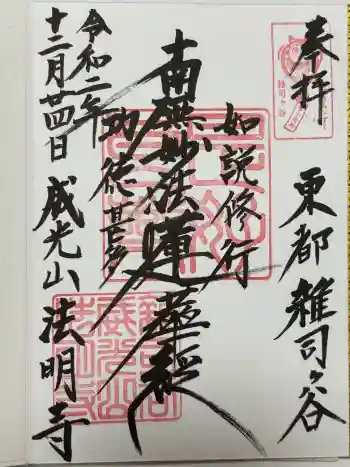 奉拝
東都雑司ヶ谷
如説修行
南無妙法蓮華経
功徳甚多
令和二年
十二月廿四日
威光山法明寺
雑司ヶ谷